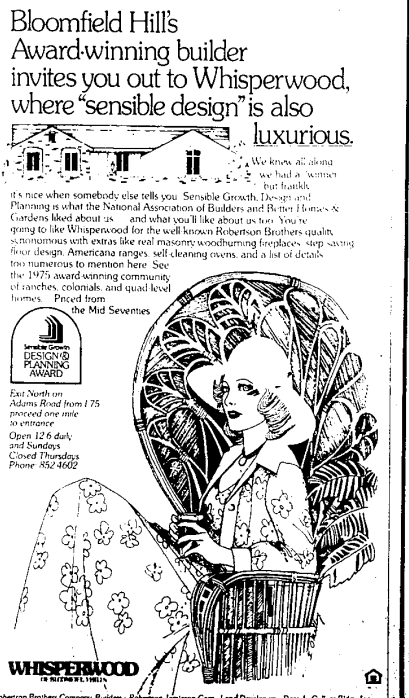 Bloomfield Hill's
Award-winning builder
invites you out to Whisperwood,
where "sensible design" is also
luxurious.
We knew all along
we had a winner
but frankly
it's nice when somebody else tells you. Sensible Growth, Design and
Planning is what the National Association of Builders and Better Homes &
Gardens liked about us and what you'll like about us too. You're
going to like Whisperwood for the well-known Robertson Brothers quality,
synonomous with extras like real masonry woodburning fireplaces, step saving
floor design, Americana ranges, self-cleaning ovens, and a list of details
too numerous to mention here. See
the 1975 award-winning community
of ranches, colonials, and quad-level
homes. Priced from
the Mid Seventies
Sensible Growth
DESIGN &
PLANNING
AWARD
Exit North on
Adams Road from I 75
proceed one mile
to entrance
Open 12-6 daily
and Sundays
Closed Thursdays
Phone 852 4602
WHISPERWOOD
OF BLOOMFIELD HILLS
Robertson Brothers Company, Builders